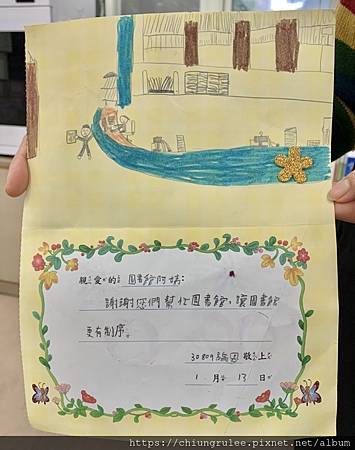 親愛的圖書館阿姨:
謝謝您們幫忙圖書館,讓圖書館
更有制序。
30809論因敬上
1月13日
https://chiungrulee.pixnet.net/album